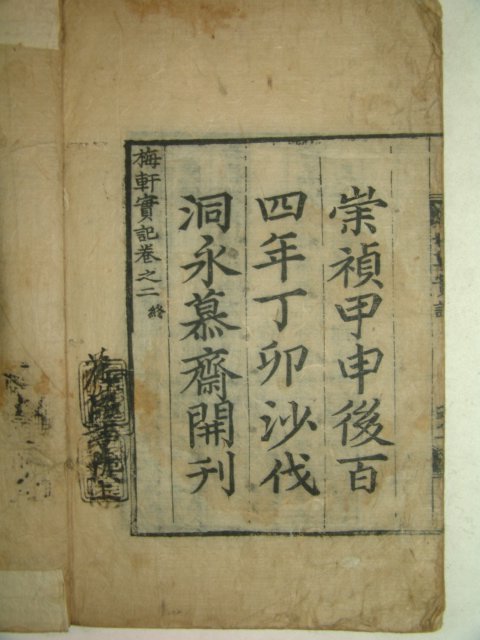 崇禎甲申後百
四年丁卯沙伐
洞永慕齋開刊
梅軒實記卷之二 終